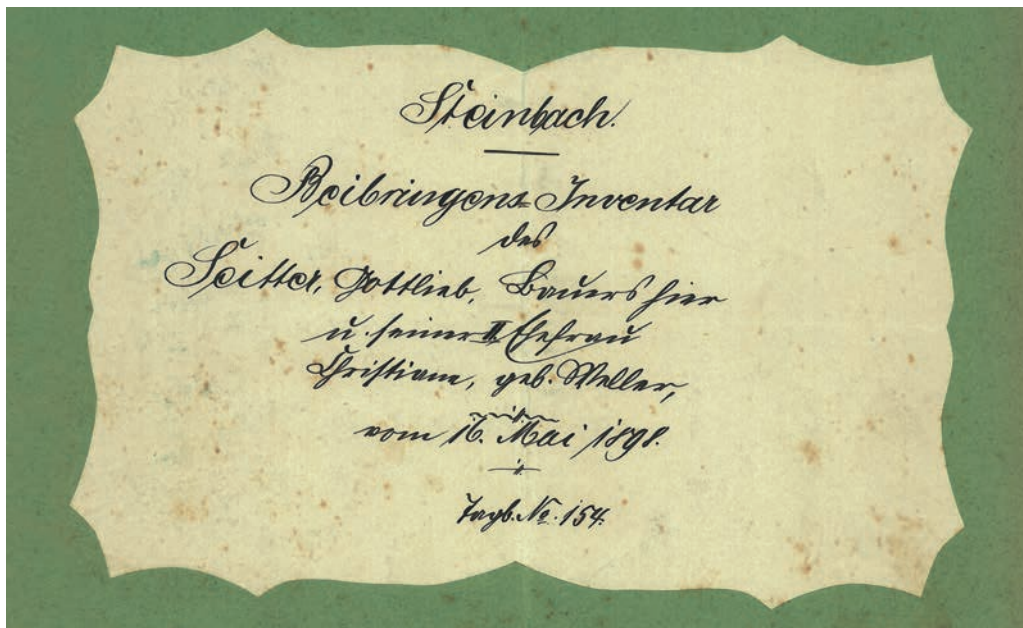 Steinbach.
Beibringens-Inventar
des
Seitter, Gottlieb, Bauers hier
u. seiner II Ehefrau
Christiane, geb. Weller,
vom 16. Mai 1898.
Tagb. No. 154.